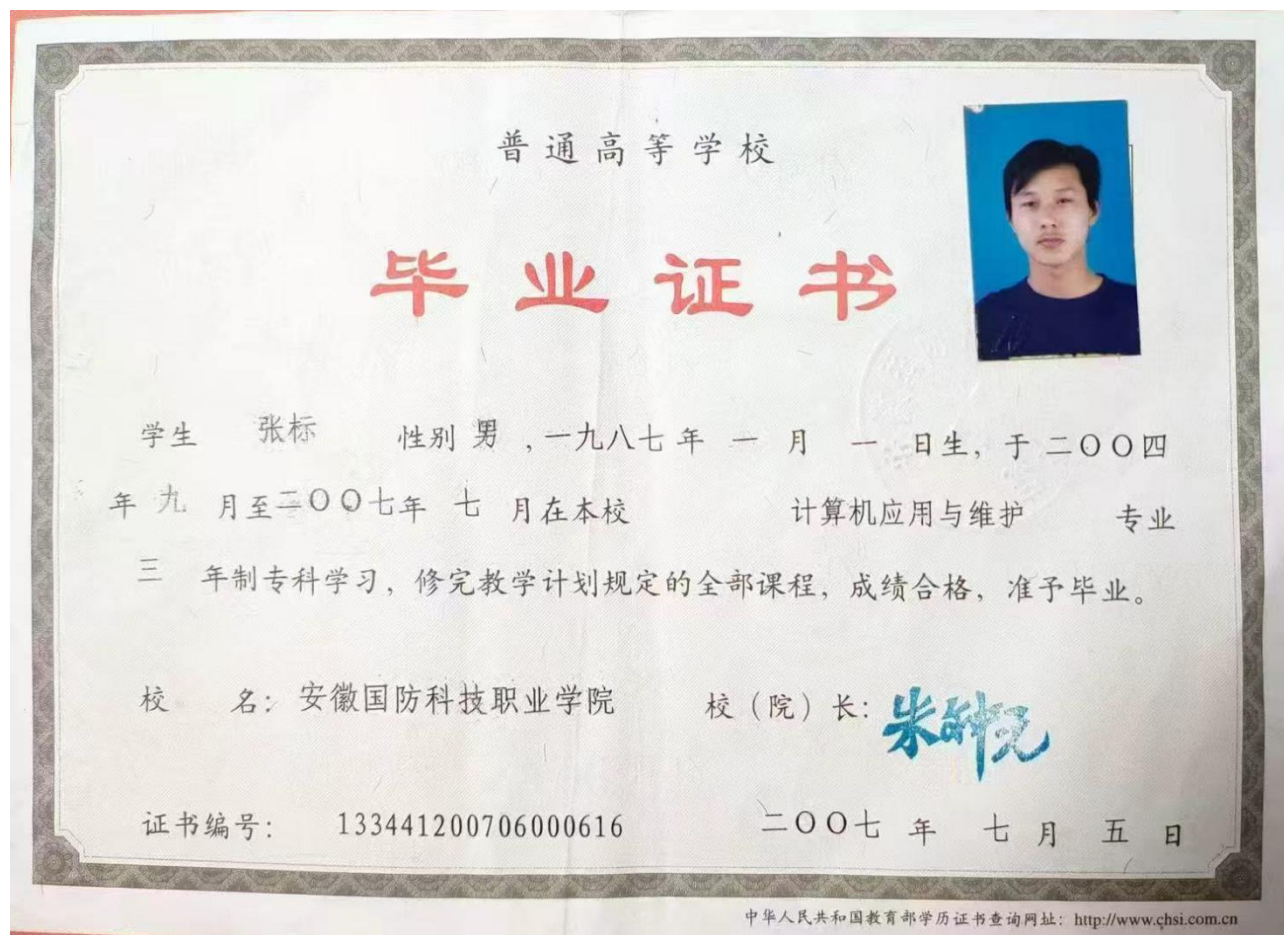 普通高等学校
毕业证书
学生 张标 性别 男 ，一九八七年 一 月 一 日生，于二〇〇四
年 九 月至二〇〇七年 七 月在本校 计算机应用与维护 专业
三 年制专科学习，修完教学计划规定的全部课程，成绩合格，准予毕业。
校 名：安徽国防科技职业学院 校（院）长：
证书编号： 133441200706000616 二〇〇七 年 七 月 五 日
中华人民共和国教育部学历证书查询网址：http://www.chsi.com.cn